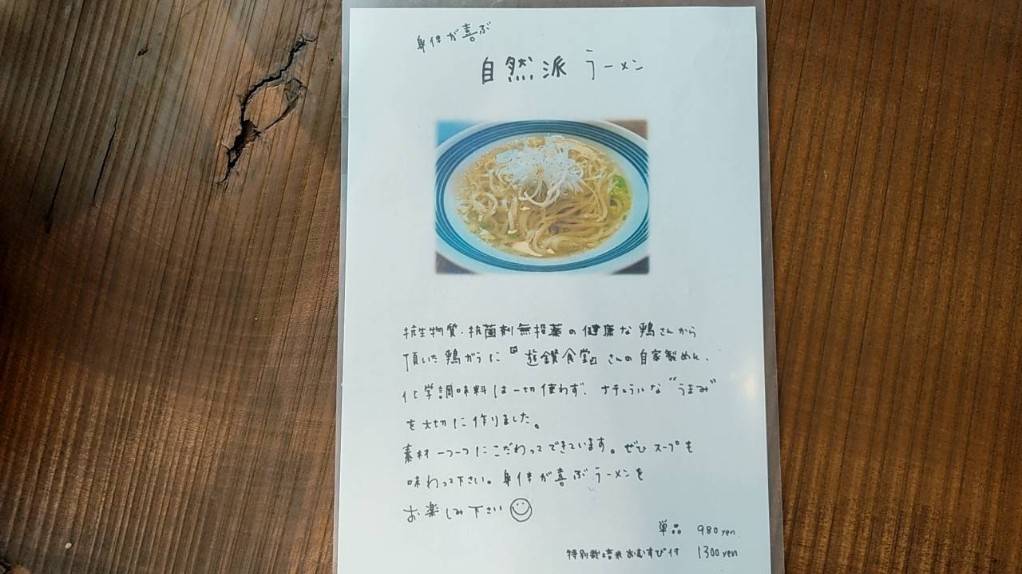 身体が喜ぶ
自然派 ラーメン
抗生物質・抗菌剤無投薬の健康な鴨さんから
頂いた鴨ガラに『遊鑽食堂』さんの自家製めん、
化学調味料は一切使わず、ナチュラルな"うまみ"
を大切に作りました。
素材一つ一つにこだわってできています。ぜひスープも
味わって下さい。身体が喜ぶラーメンを
お楽しみ下さい
単品 980yen
特別栽培米おむすび付 1300yen